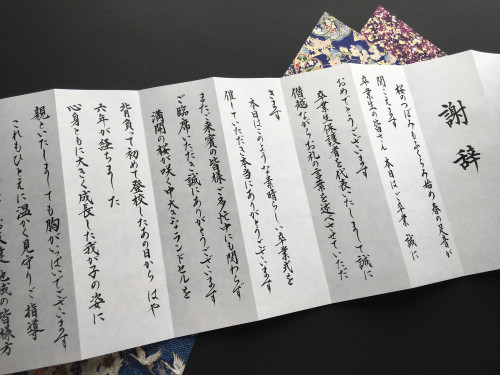 謝辞
桜のつぼみもふくらみ始め 春の足音が
聞こえます
卒業生の皆さん 本日はご卒業 誠に
おめでとうございます
卒業生保護者を代表いたしまして誠に
僭越ながらお礼の言葉を述べさせていただ
きます
本日はこのような素晴らしい卒業式を
催していただき本当にありがとうございます
またご来賓の皆様 ご多忙中にも関わらず
ご臨席いただき誠にありがとうございます
満開の桜が咲く中大きなランドセルを
背負って初めて登校したあの日から はや
六年が経ちました
心身ともに大きく成長した我が子の姿に
親といたしましても胸がいっぱいでございます
これもひとえに温かく見守りご指導
地域の皆様方